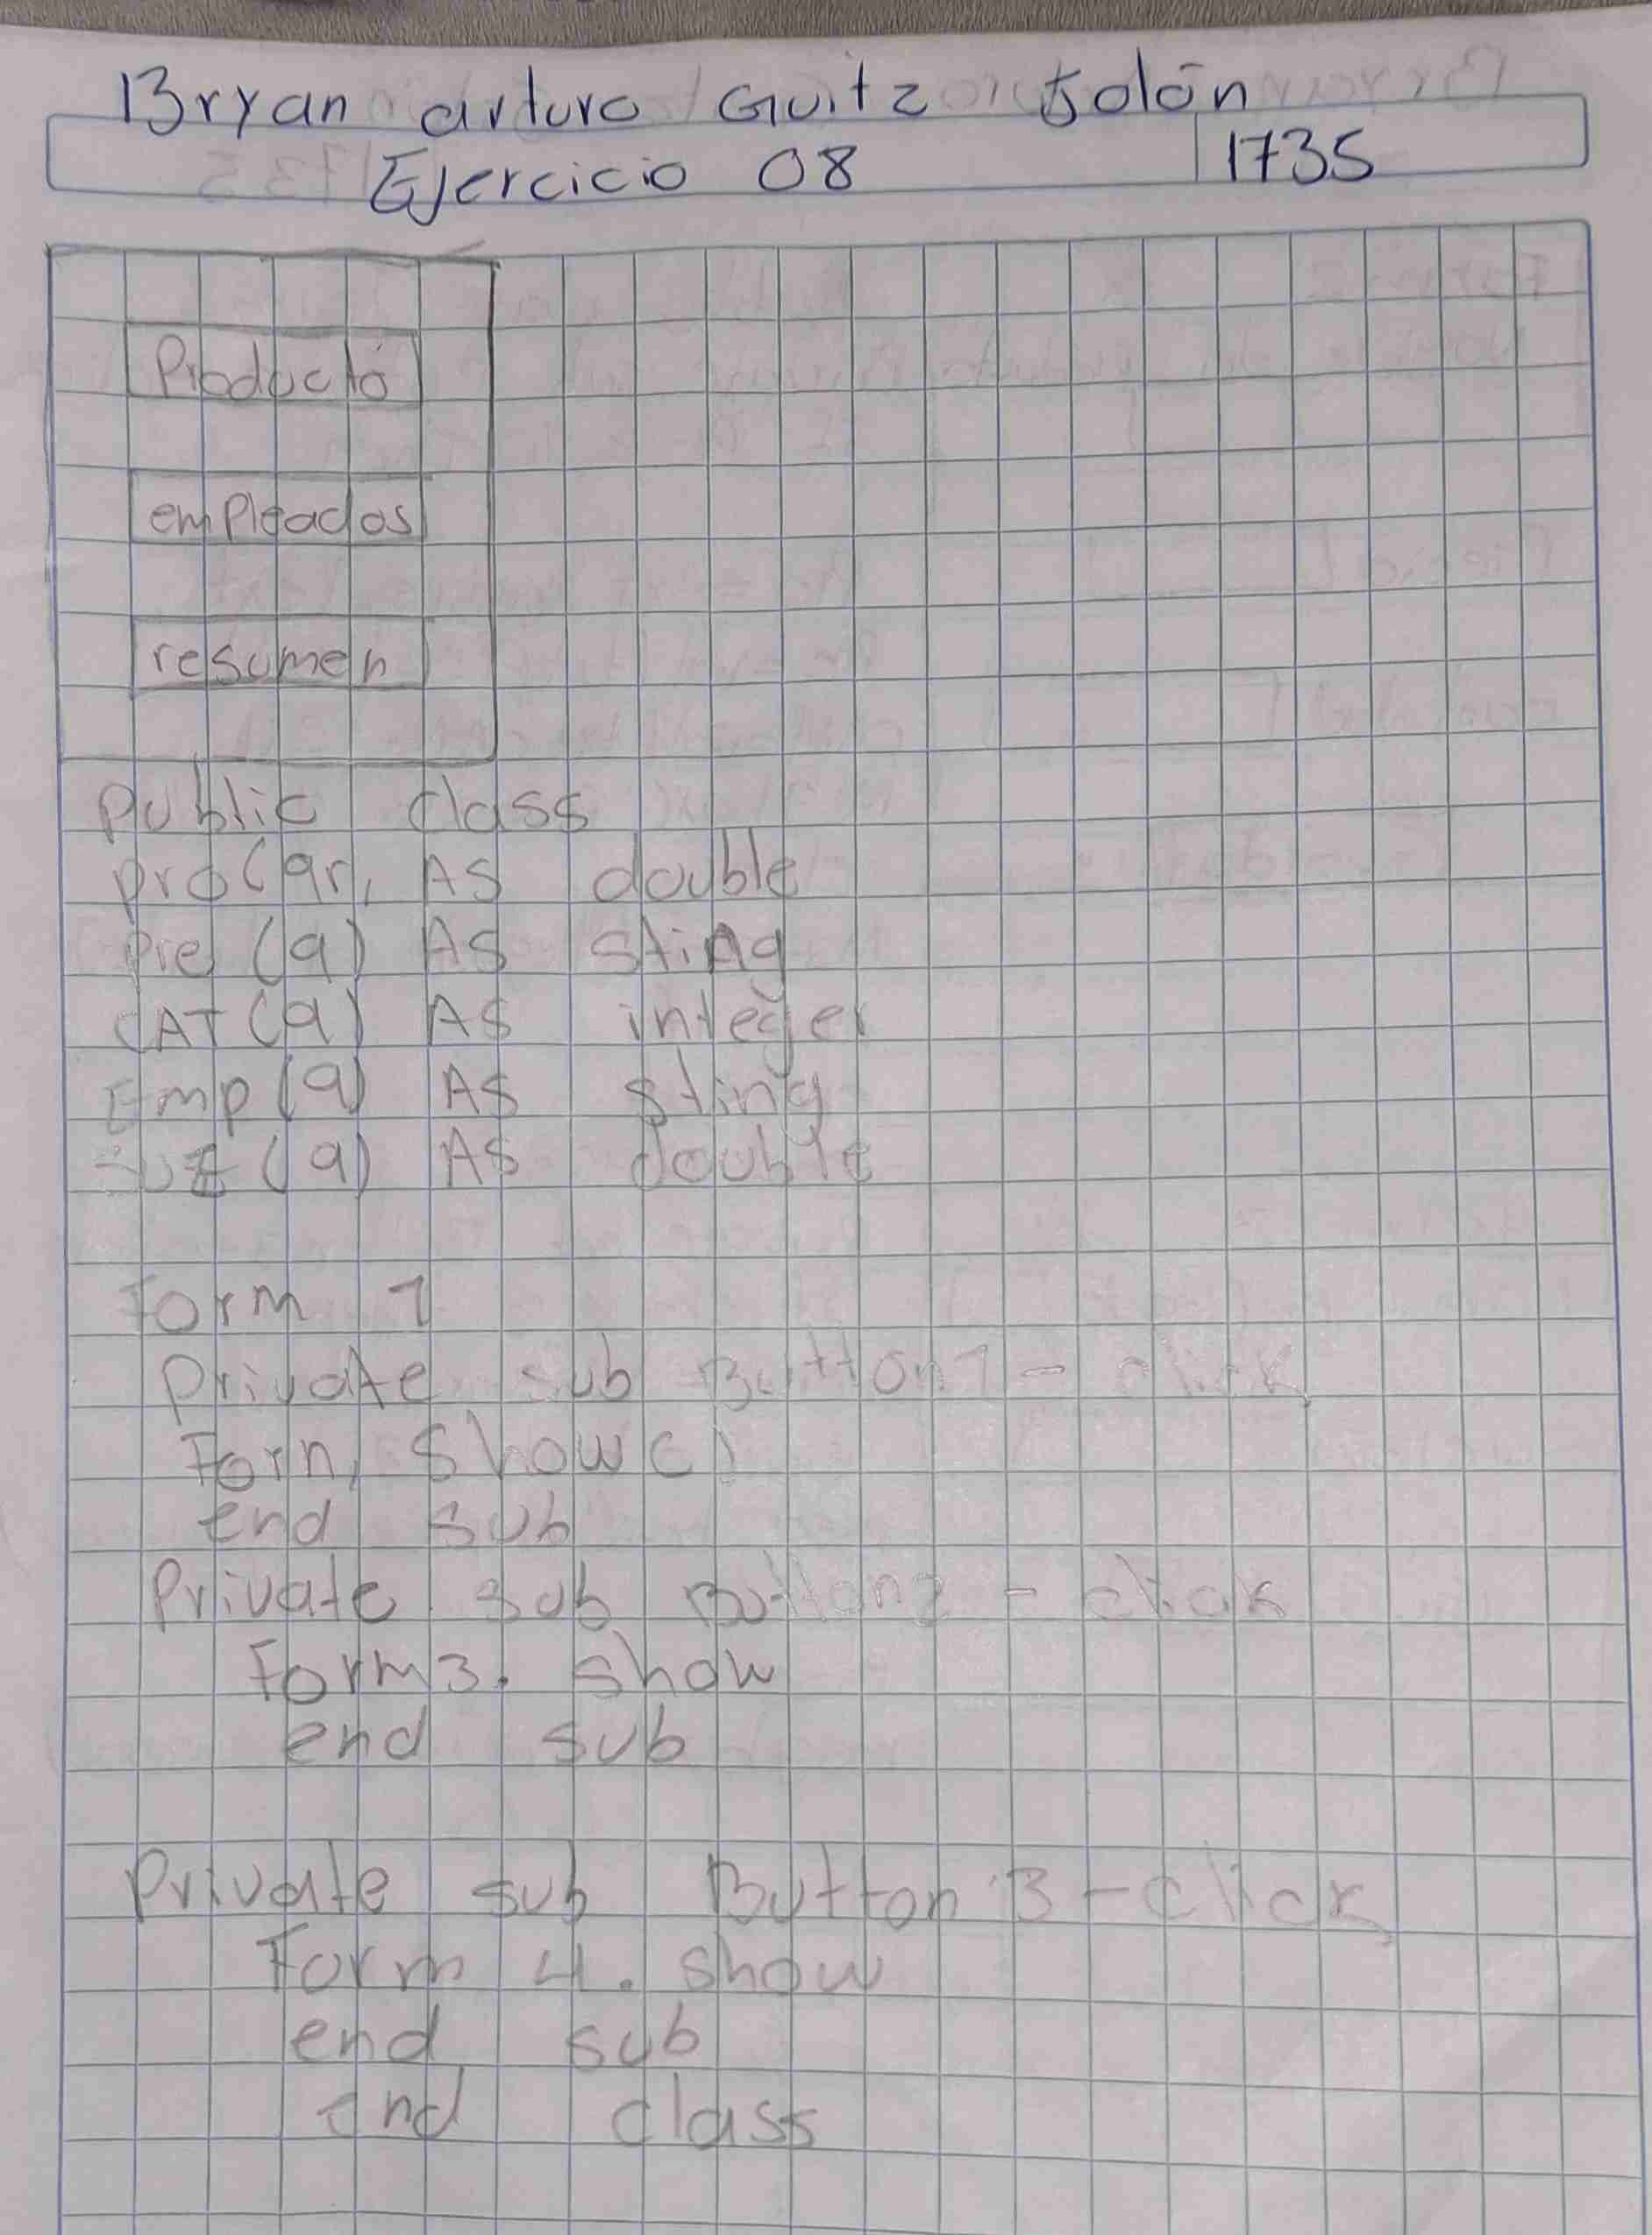 Bryan arturo Guitz Jolón
Ejercicio 08 1735
Producto
empleados
resumen
Public class
pro(9), AS double
Pre (9) AS sting
CAT(9) AS integer
Emp (9) AS sting
(9) AS double
Form 1
Private sub Button1 - click
Form, show()
end sub
Private sub Button2 - click
Form3. show
end sub
Private sub Button 3 - click
Form 4. show
end sub
end class